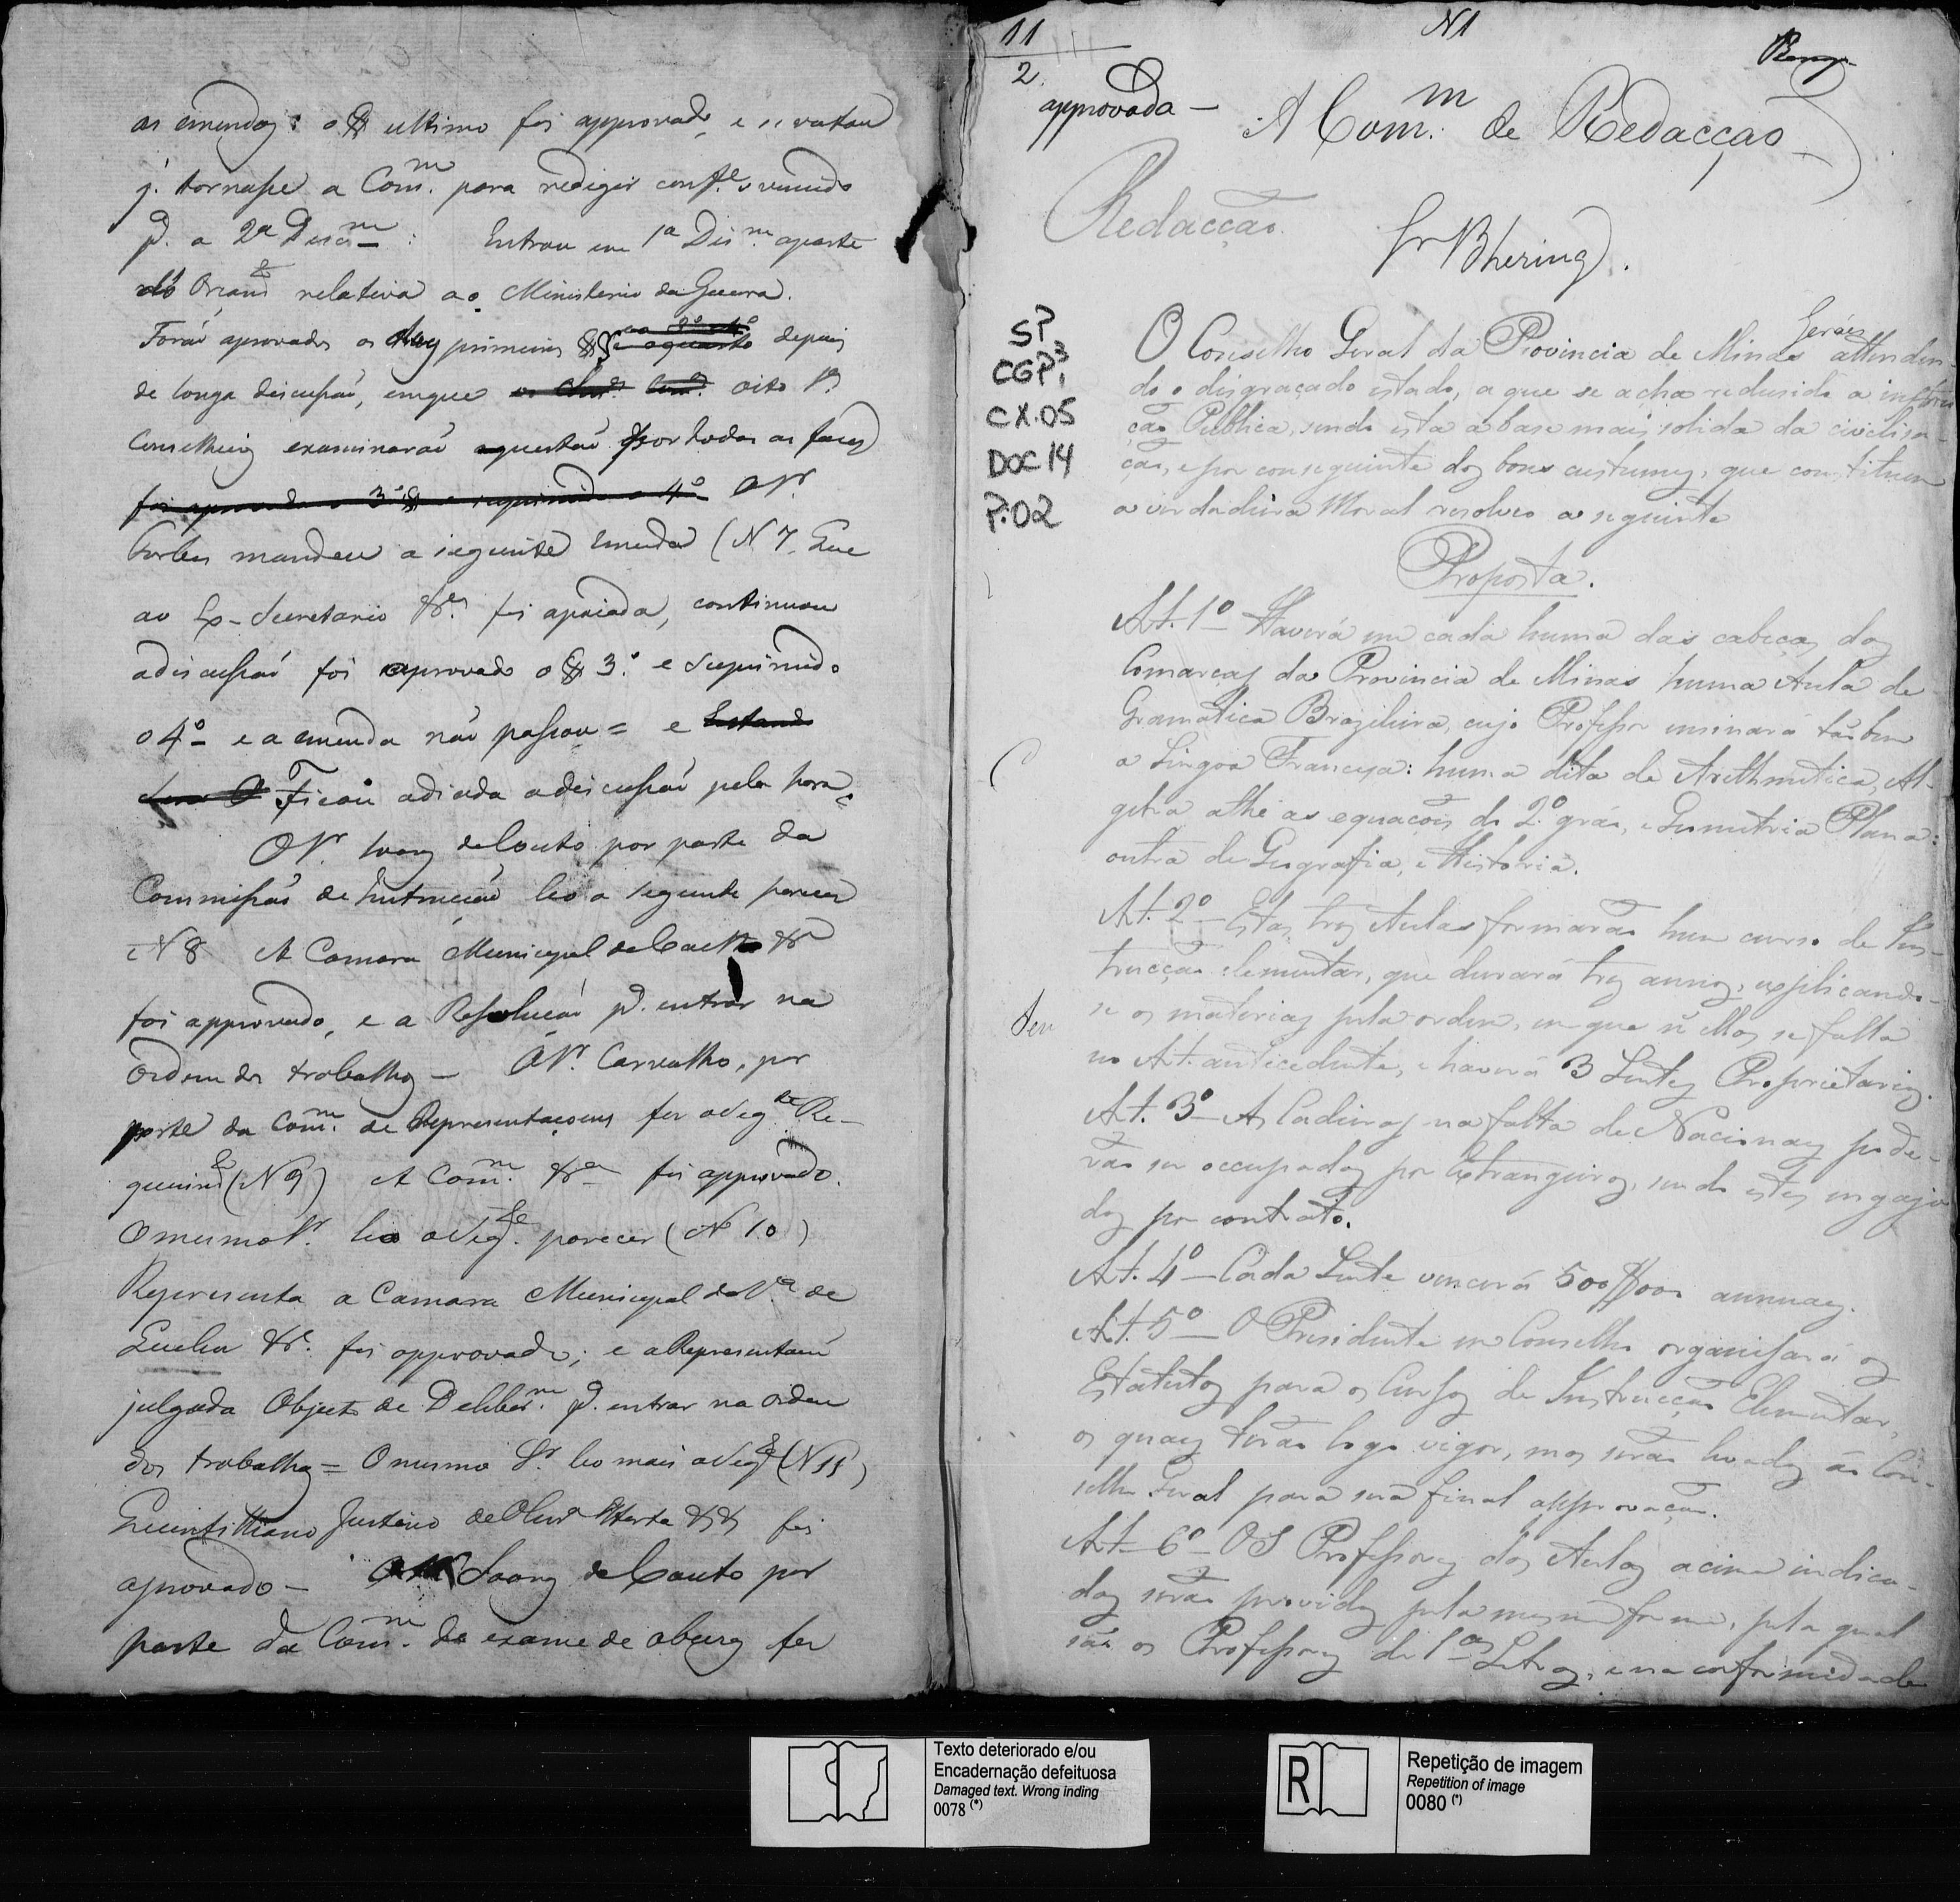 as emendas: o § ultimo foi approvado, e se votou
q. tornasse a Com.m para redigir conf.e o vencido
p.a a 2ª Discm : Entrou em 1ª Dis.m aparte
do Orçamto relativa ao Ministerio da Guerra.
Forão aprovados os dous primeiros §§ depois
de longa discussão, emque oito Srs
Conselheiros examinarão aquestão por todas as faces
foi aprovado o 3º § e supprimido o 4º O Sr.
mandou a seguinte Emenda (N 7. Que
ao Ex-Secretario &ª foi apoiada, continuou
adiscussão foi aprovado o § 3.º e Suprimido
o 4º e a emenda não passou = e Estando
Ficou adiada adiscussão pela hora.
O Sr. Soares deCouto por parte da
Commissão de Instrucção leo o seguinte parecer
N 8 A Camara Municipal de Caethe &ª
foi approvado, e a Resolução pª. entrar na
Ordem dos trabalhos — O Sr. Carvalho, por
parte da Com.m de Representaçoens fez oSegte Re-
querimto (N 9) A Com.m &ª foi approvado.
OmesmoSr. leo oSegte. parecer (N 10)
Representa a Camara Municipal daVª de
Queluz &ª. foi approvado; e aRepresentam
julgada Objecto de Deliber.m pª. entrar na Ordem
dos trabalhos = Omesmo Sr. leo mais oSegte (N 11)
Quintiliano Justino deOlivª Horta && foi
aprovado — O Sr Soares deCouto por
parte da Com.m de exame de obras fez
11
2
N1
approvada — A Com.m de Redacção
Redacção.
Sr Bhering.
SP
CGP 3
1
CX.05
DOC 14
P.02
Geráes
O Conselho Geral da Provincia de Minas attenden-
do o disgraçado estado, a que se acha redusida a instru-
ção Publica, sendo esta a base mais solida da civilisa-
ção, e por conseguinte dos bons custumes, que constituem
a verdadeira Moral resolveo a seguinte
Proposta.
Art. 1º — Haverá em cada huma das cabeças das
Comarcas da Provincia de Minas huma Aula de
Gramatica Brazileira, cujo Professor ensinará tãobem
a Lingoa Francesa: huma dita de Arithmetica, Al-
gebra athe as equações do 2.º gráo, e Geometria Plana:
outra de Geografia, e Historia.
Art. 2º — Estas tres Aulas formarão hum curso de Ins-
trucção elementar, que durará tres annos, explicando-
se as materias pela ordem, em que n'ellas se falla
no Art. antecedente, e haverá 3 Lentes Proprietarios.
Art. 3º — As Cadeiras na falta de Nacionaes pode-
rão ser occupadas por Estrangeiros, sendo estes engaja-
dos por contrato.
Art. 4º — Cada Lente vencerá 500$000 annuaes.
Art. 5º — O Presidente em Conselho organisará os
Estatutos para os Cursos de Instrucção Elementar,
os quaes terão logo vigor, mas serão levados ao Con-
selho Geral para sua final approvação.
Art. 6º — OS Professores das Aulas acima indica-
das serão providos pela mesma forma, pela qual
são os Professores de 1as Letras, e na conformidade
Texto deteriorado e/ou
Encadernação defeituosa
Damaged text. Wrong inding
0078 (*)
R
Repetição de imagem
Repetition of image
0080 (*)